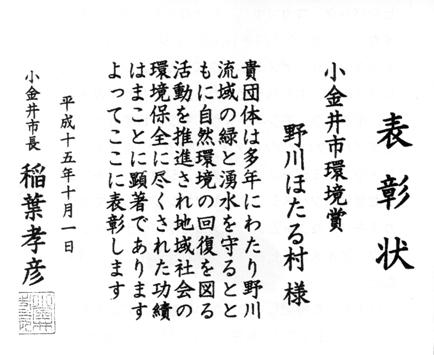 表彰状
小金井市環境賞
野川ほたる村様
貴団体は多年にわたり野川
流域の緑と湧水を守るとと
もに自然環境の回復を図る
活動を推進され地域社会の
環境保全に尽くされた功績
はまことに顕著であります
よってここに表彰します
平成十五年十月一日
小金井市長 稲葉孝彦